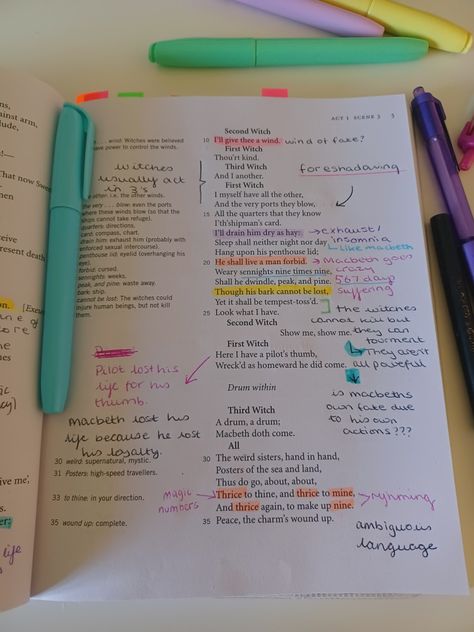 ACT 1 SCENE 3 5
Second Witch
10 I'll give thee a wind. wind of fate?
First Witch
Thou'rt kind.
Third Witch
And I another.
First Witch
I myself have all the other,
And the very ports they blow,
15 All the quarters that they know
I'th'shipman's card.
I'll drain him dry as hay:
Sleep shall neither night nor day
Hang upon his penthouse lid;
20 He shall live a man forbid.
Weary sennights nine times nine,
Shall he dwindle, peak, and pine.
Though his bark cannot be lost,
Yet it shall be tempest-toss'd.
25 Look what I have.
Second Witch
Show me, show me.
First Witch
Here I have a pilot's thumb,
Wreck'd as homeward he did come.
Drum within
Third Witch
A drum, a drum;
Macbeth doth come.
All
30 The weïrd sisters, hand in hand,
Posters of the sea and land,
Thus do go, about, about,
Thrice to thine, and thrice to mine,
And thrice again, to make up nine.
35 Peace, the charm's wound up.
foreshadowing
exhaust/
insomnia
Like macbeth
Macbeth goes
crazy
567 days
suffering
the witches
cannot kill but
they can
tourment
They aren't
all powerful
is macbeths
own fate due
to his own
actions???
rhyming
ambiguous
language
wind: Witches were believed
have power to control the winds.
witches
usually act
in 3's
other, i.e. the other winds.
the very . . . blow: even the ports
where these winds blow (so that the
ships cannot take refuge).
quarters: directions.
card: compass, chart.
drain him: exhaust him (probably with
enforced sexual intercourse).
penthouse lid: eyelid (overhanging his
eye).
forbid: cursed.
sennights: weeks.
peak, and pine: waste away.
bark: ship.
cannot be lost: The witches could
injure human beings, but not kill
them.
Pilot lost his
life for his
thumb.
macbeth lost his
life because he lost
his loyalty.
30 weïrd: supernatural, mystic.
31 Posters: high-speed travellers.
33 to thine: in your direction.
magic
numbers
35 wound up: complete.
against arm,
That now Swe
present death
[Exeu
ive me',
life